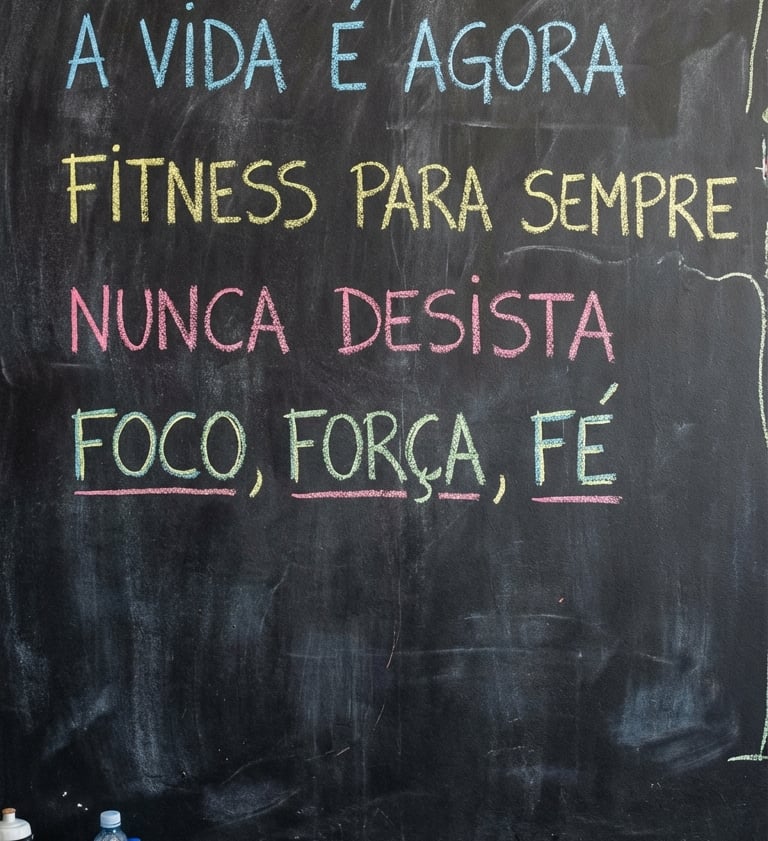 A VIDA É AGORA
FITNESS PARA SEMPRE
NUNCA DESISTA
FOCO, FORÇA, FÉ